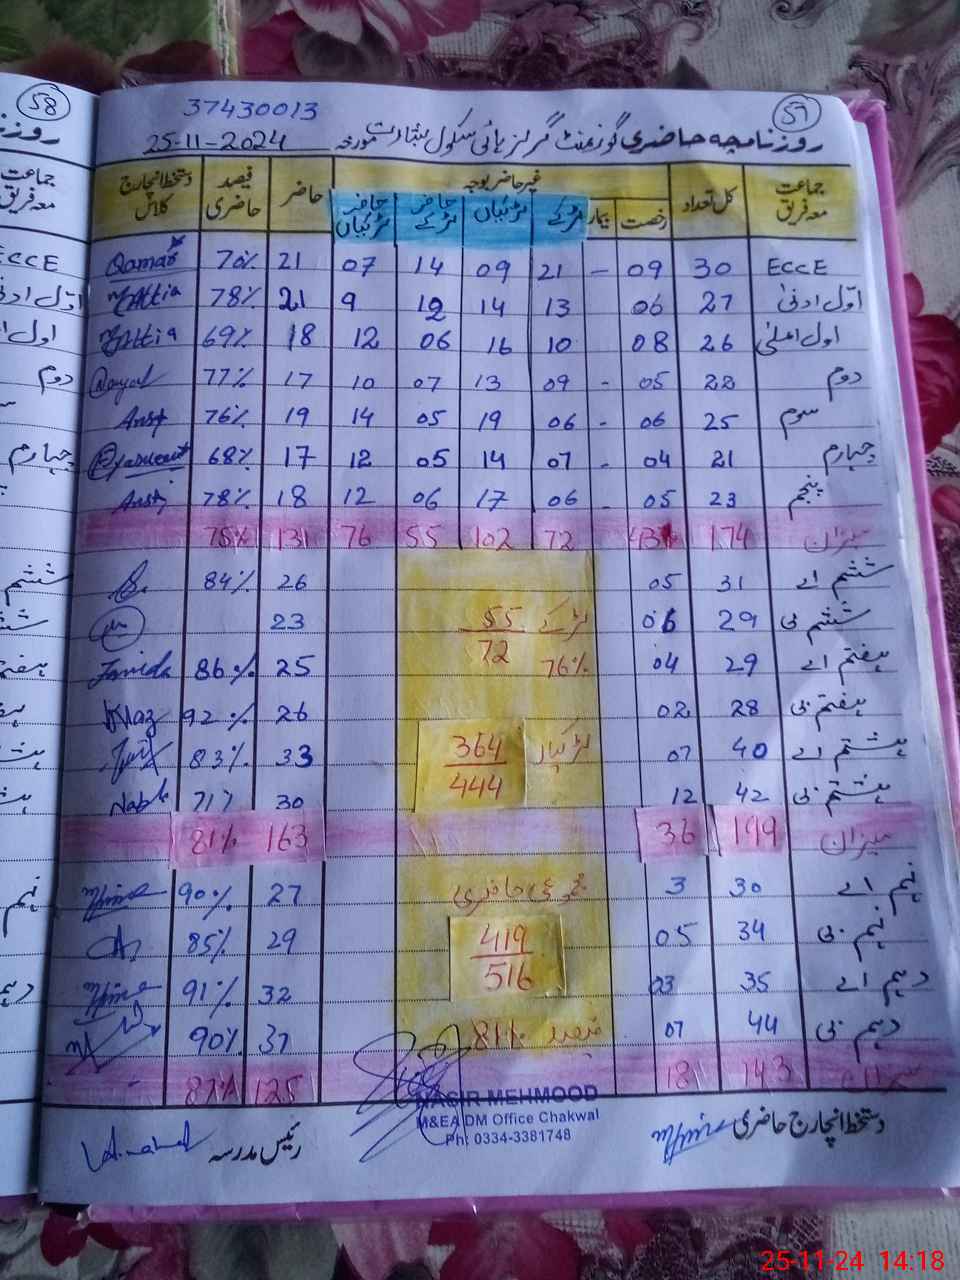 58
59
37430013
روزنامچہ حاضری گورنمنٹ گرلز ہائی سکول بشارت مورخہ 25-11-2024
جماعت معہ فریق کل تعداد غیر حاضر بوجہ حاضر فیصد حاضری دستخط انچارج کلاس
رخصت بیمار لڑکے لڑکیاں حاضر لڑکے حاضر لڑکیاں
ECCE 30 09 - 21 09 14 07 21 70% Qamar
اول ادنیٰ 27 06 13 14 12 9 21 78% Attia
اول اعلیٰ 26 08 10 16 06 12 18 69% Attia
دوم 22 05 - 09 13 07 10 17 77%
سوم 25 06 - 06 19 05 14 19 76%
چہارم 21 04 - 07 14 05 12 17 68%
پنجم 23 05 - 06 17 06 12 18 78%
میزان 174 43 72 102 55 76 131 75%
ششم اے 31 05 26 84%
ششم بی 29 06 لڑکے 55/72 23
ہفتم اے 29 04 76% 25 86%
ہفتم بی 28 02 26 92%
ہشتم اے 40 07 لڑکیاں 364/444 33 83%
ہشتم بی 42 12 30 71%
میزان 199 36 163 81%
نہم اے 30 3 مجموعی حاضری 27 90%
نہم بی 34 05 419/516 29 85%
دہم اے 35 03 32 91%
دہم بی 44 07 فیصد 81% 37 90%
میزان 143 18 125 87%
NASIR MEHMOOD
M&EA DM Office Chakwal
Ph: 0334-3381748
دستخط انچارج حاضری رئیس مدرسہ
ECCE
اول ادنیٰ
دوم
چہارم
ششم
25-11-24 14:18